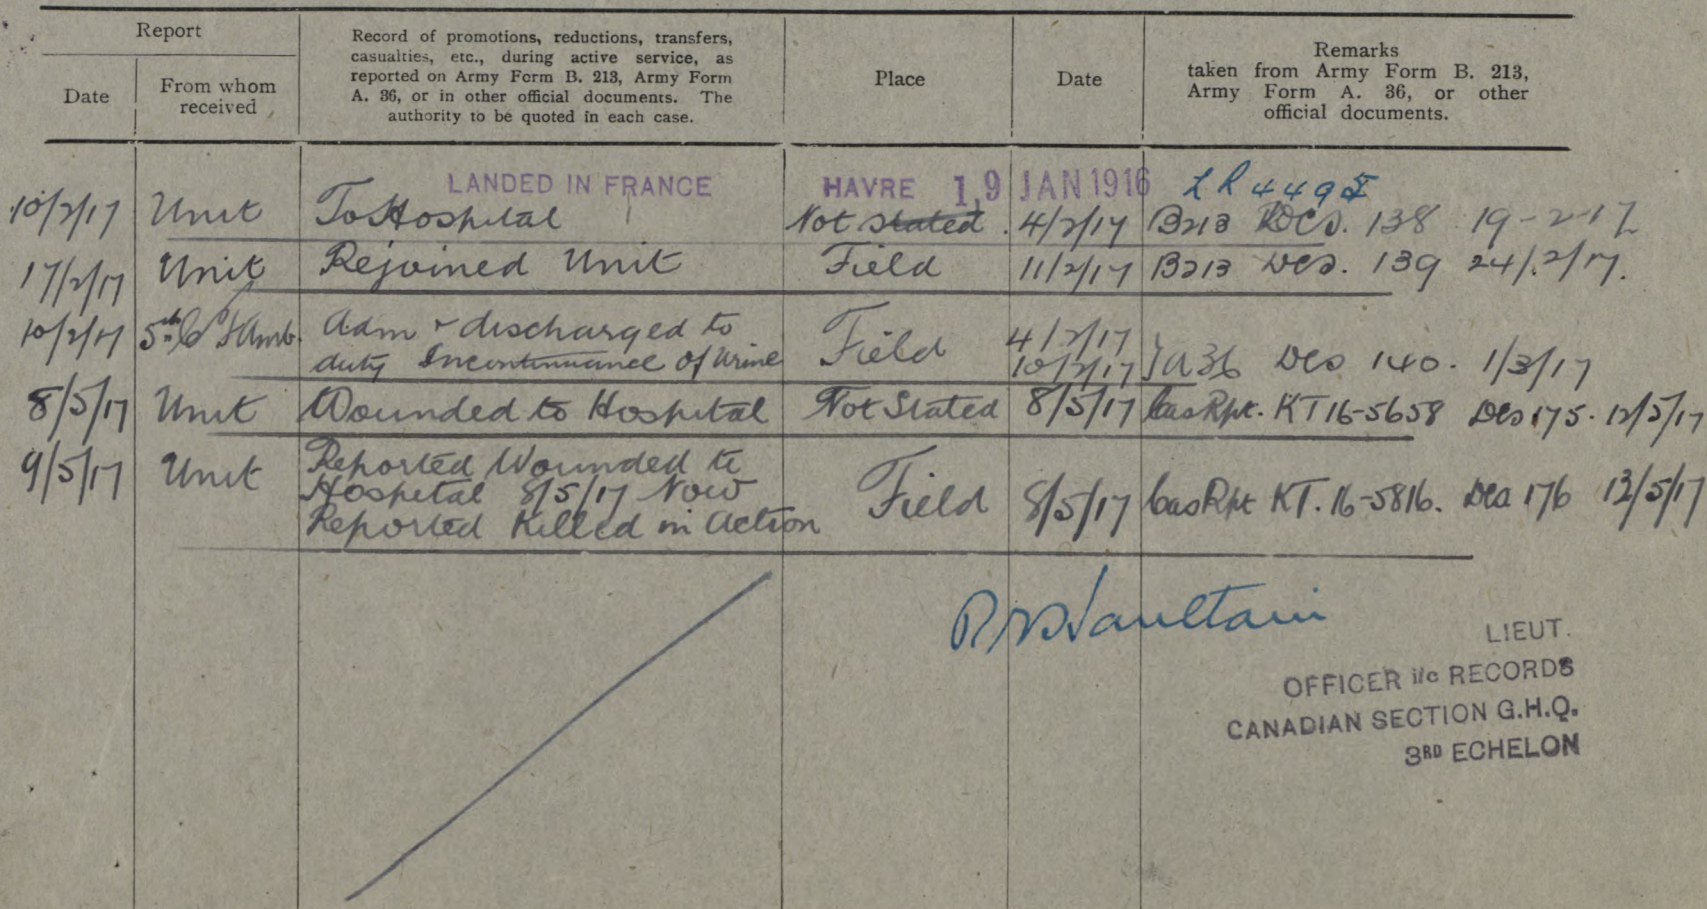 Report
Date
From whom
received
Record of promotions, reductions, transfers,
casualties, etc., during active service, as
reported on Army Form B. 213, Army Form
A. 36, or in other official documents. The
authority to be quoted in each case.
Place
Date
Remarks
taken from Army Form B. 213,
Army Form A. 36, or other
official documents.
LANDED IN FRANCE HAVRE 19 JAN 1916 LR 449
10/2/17 Unit To Hospital Not Stated. 4/2/17 B213 Dcs. 138 19-2-17
17/2/17 Unit Rejoined Unit Field 11/2/17 B213 Dcs. 139 24/2/17.
10/2/17 5th C F Amb. Adm & discharged to Field 4/2/17
duty Incontinuance of Urine 10/2/17 A36 Dcs 140. 1/3/17
8/5/17 Unit Wounded to Hospital Not Stated 8/5/17 Cas Rpt. KT16-5658 Dcs 175. 12/5/17
9/5/17 Unit Reported Wounded to
Hospital 8/5/17 Now Field 8/5/17 Cas Rpt KT. 16-5816. Dcs 176 13/5/17
Reported Killed in Action
LIEUT.
OFFICER i/c RECORDS
CANADIAN SECTION G.H.Q.
3RD ECHELON